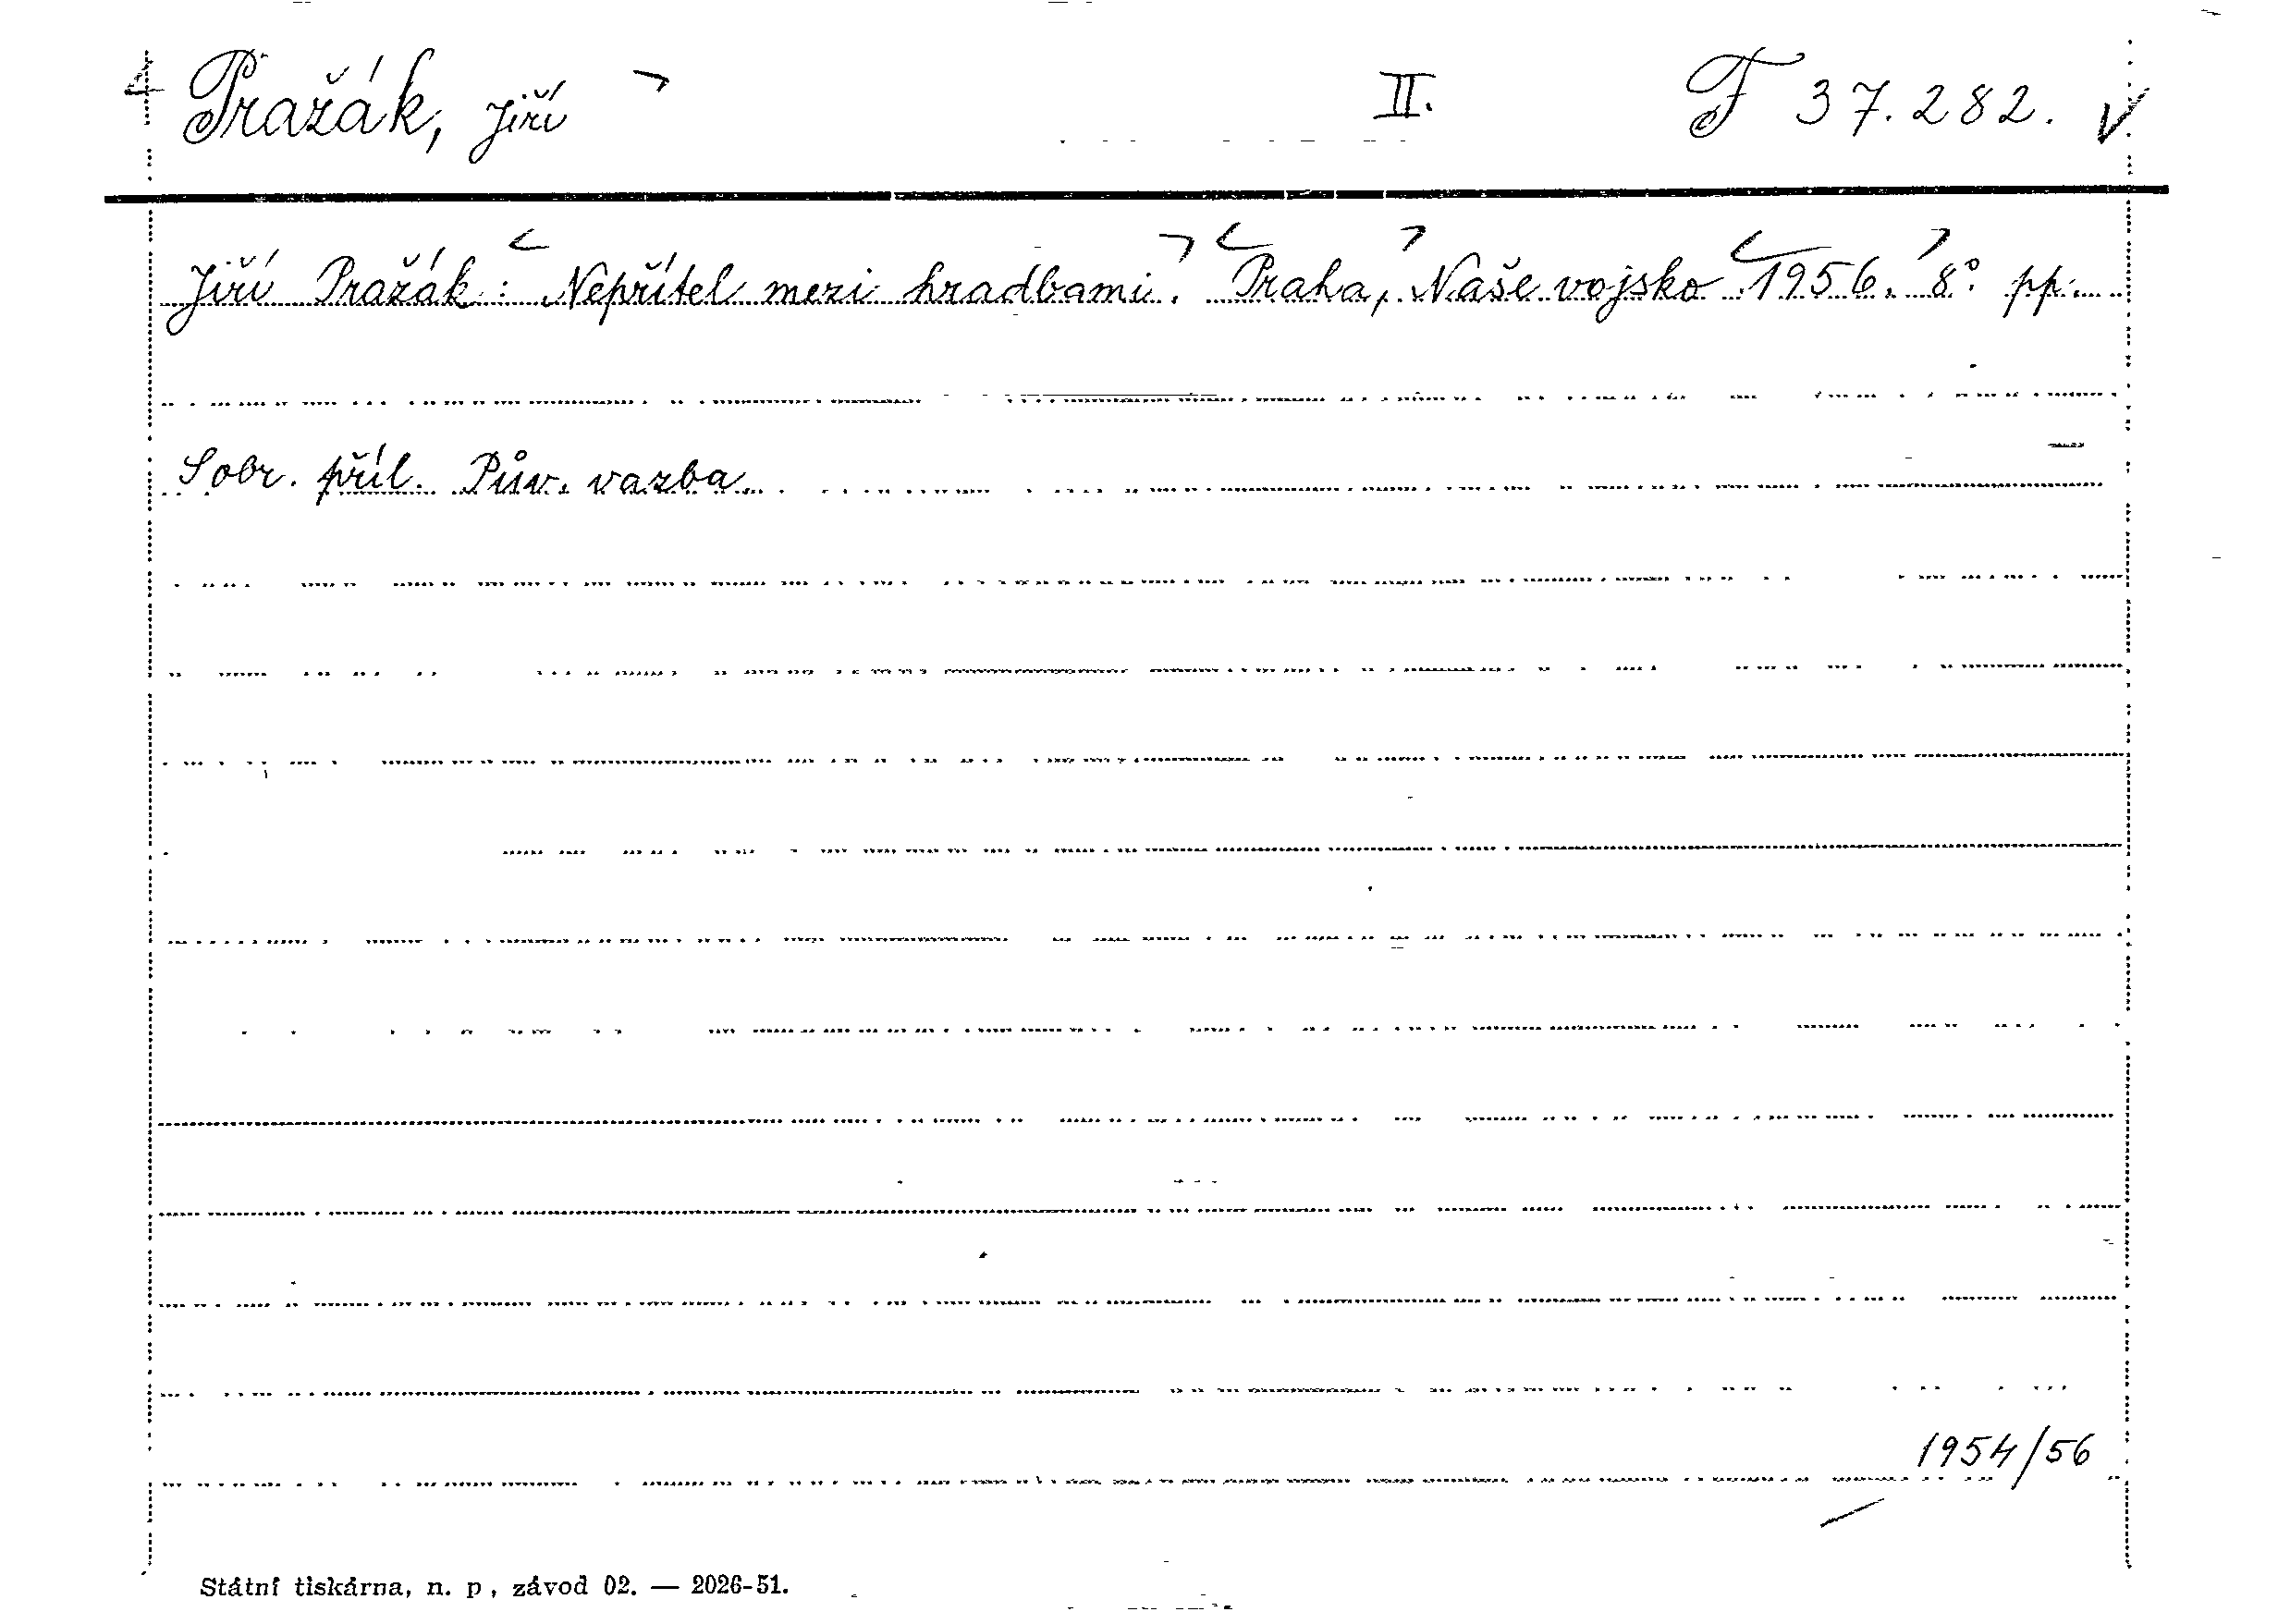 4 Pražák, Jiří II. F 37.282. V
Jiří Pražák: Nepřítel mezi hradbami. Praha, Naše vojsko 1956. 8° pp.
Sobr. příl. Pův. vazba.
1954/56
Státní tiskárna, n. p., závod 02. — 2026-51.